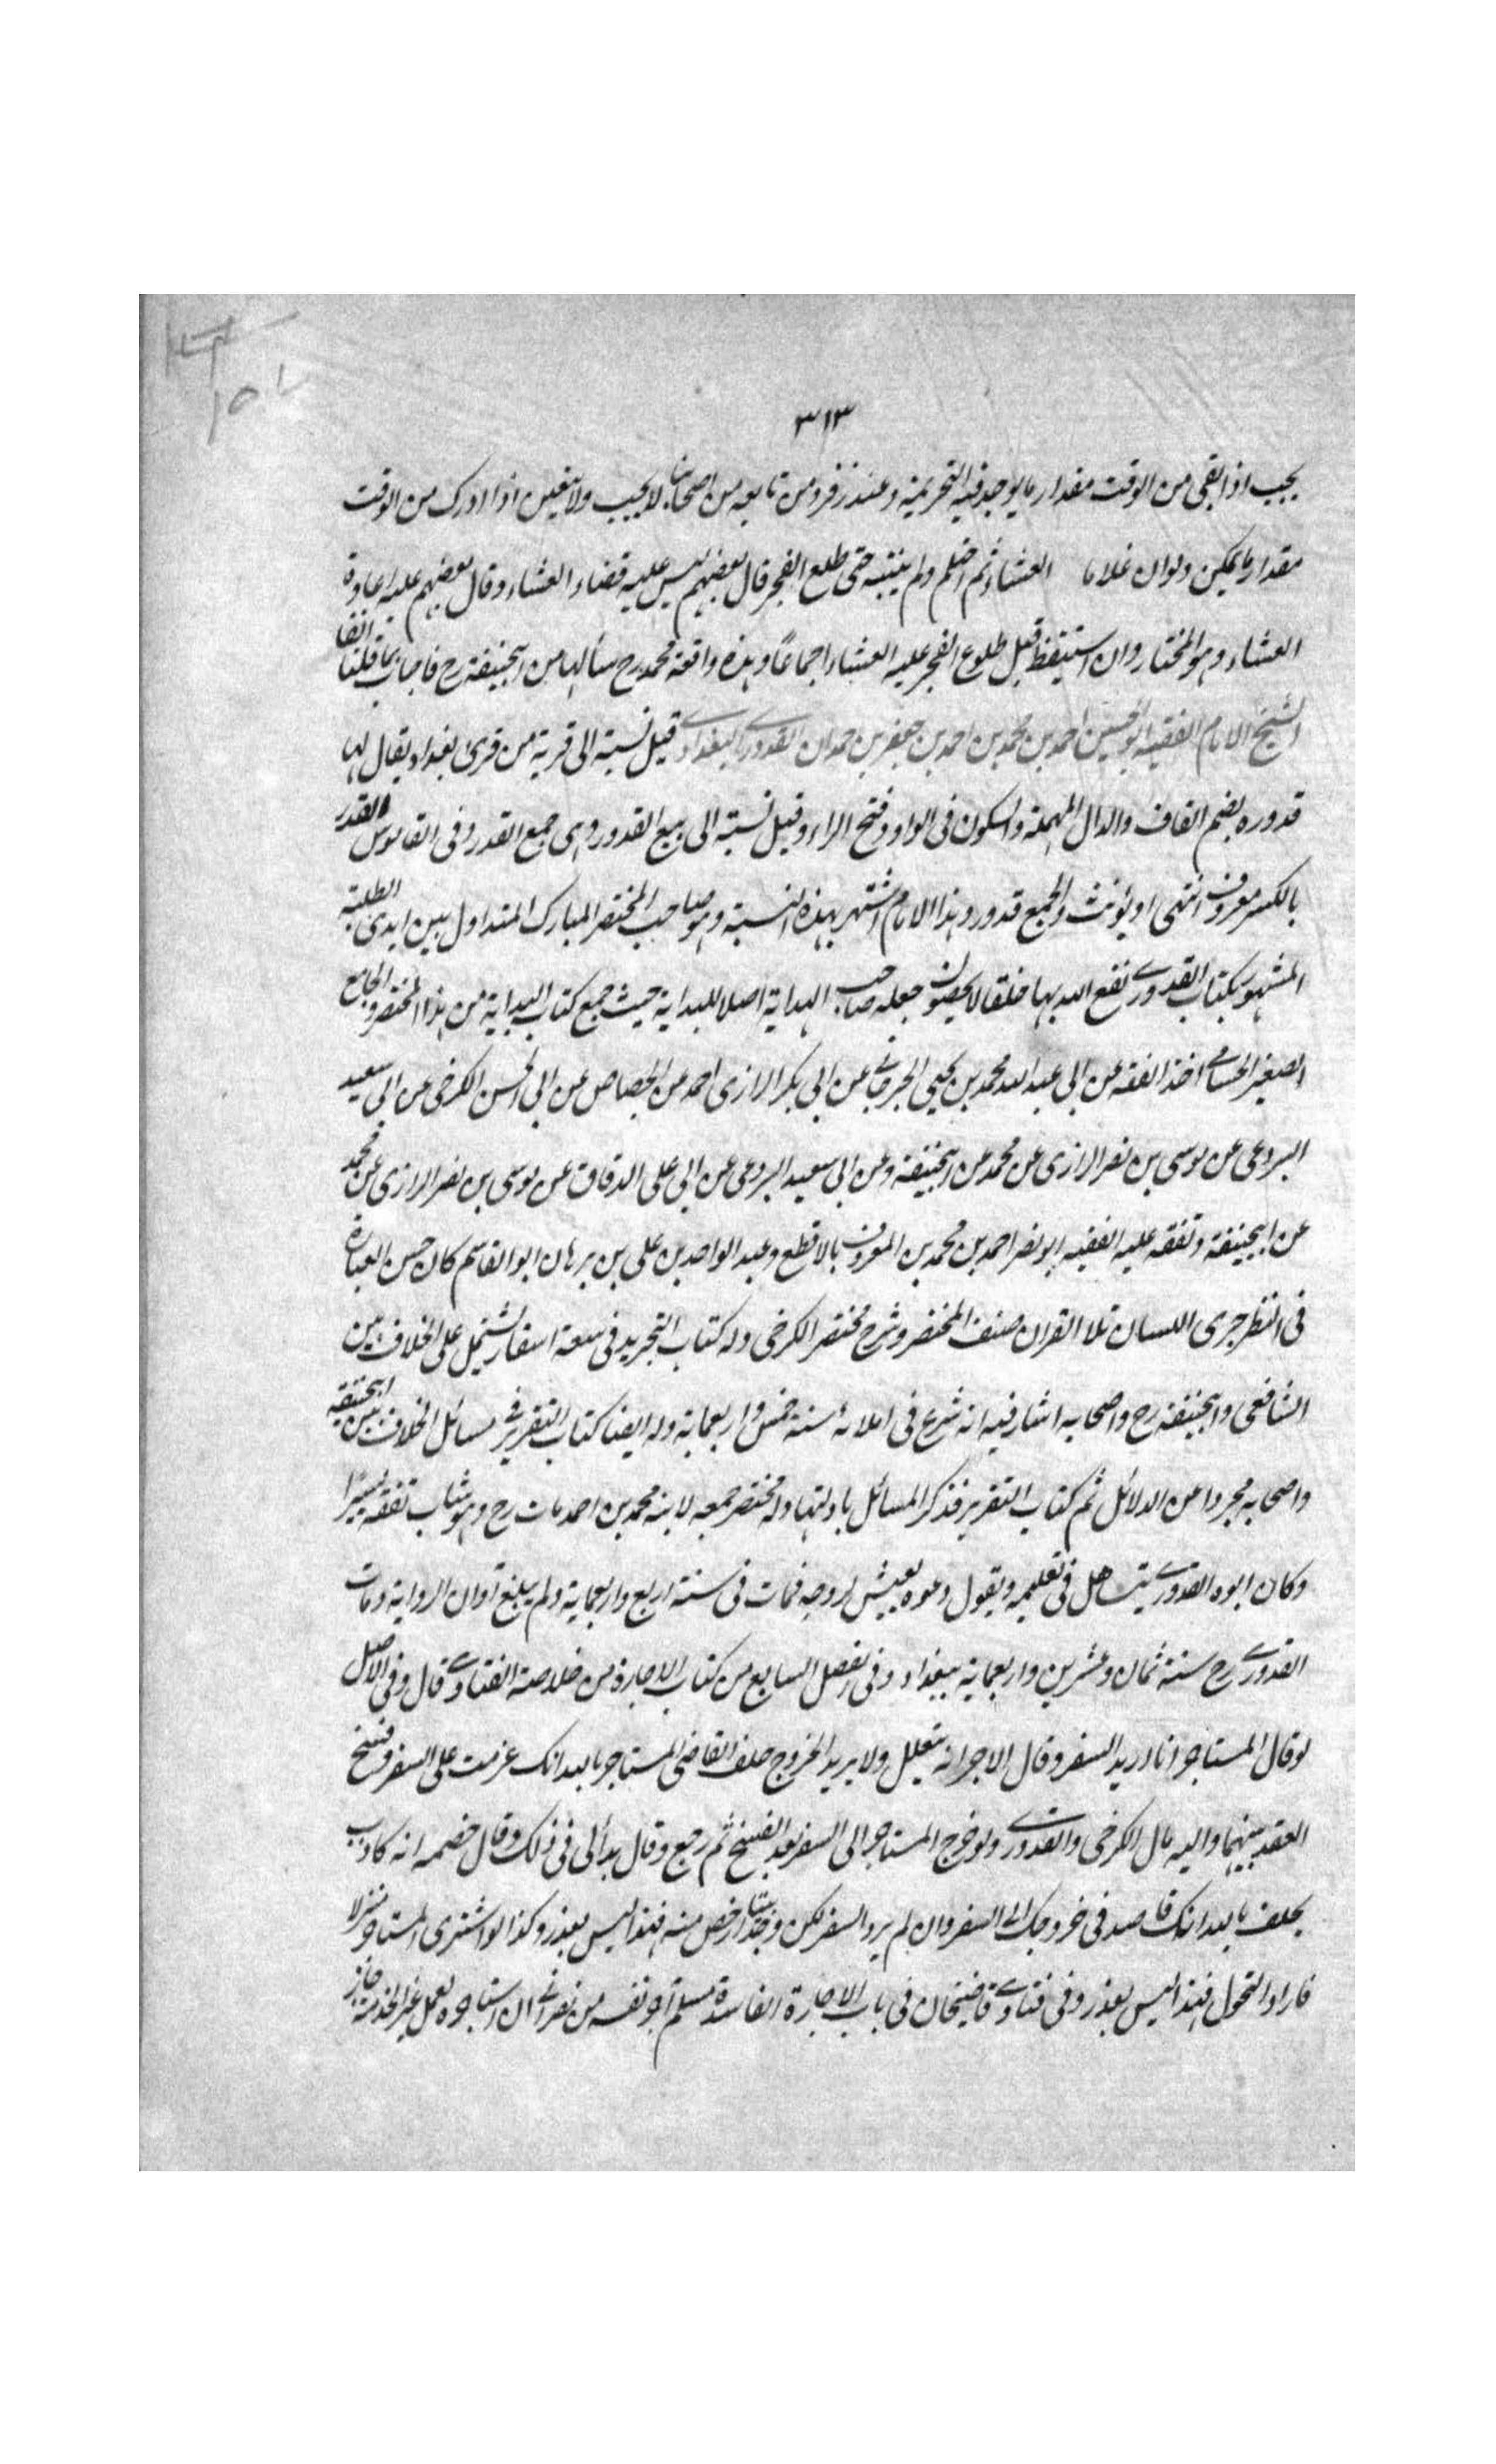 ٣١٣
يجب اذا بقى من الوقت مقدار ما يوجد فيه التحريمة وعند زفر ومن تابعه من اصحابنا لا يجب ولا يتغير الا اذا ادرك من الوقت
مقدار ما يمكن ولو ان غلاما العشاء ثم احتلم ولم ينتبه حتى طلع الفجر قال بعضهم ليس عليه قضاء العشاء وقال بعضهم عليه اعادة
العشاء وهو المختار وان استيقظ قبل طلوع الفجر عليه العشاء اجماعًا وهذه واقعة محمد رح سألها من ابيحنيفة رح فاجاب بما قلنا انفا
الشيخ الامام الفقيه ابو الحسين احمد بن محمد بن احمد بن جعفر بن حمدان القدوري البغدادي قيل نسبة الى قرية من قرى بغداد يقال لها
قدوره بضم القاف والدال المهملة والسكون فى الواو وفتح الراء وقيل نسبة الى بيع القدور وهى جمع القدر وفى القاموس القدر
بالكسر معروف انتهى او يؤنث والجمع قدور وهذا الامام اشتهر بهذه النسبة وهو صاحب المختصر المبارك المتداول بين ايدى الطلبة
المشهور بكتاب القدوري نفع الله بها خلقا لا يحصون جعله صاحب الهداية اصلا للبداية حيث جمع كتاب البداية من هذا المختصر والجامع
الصغير الحسامي اخذ الفقه عن ابى عبد الله محمد بن يحيى الجرجاني عن ابى بكر الرازى احمد عن الجصاص عن ابى الحسن الكرخى عن ابى سعيد
البردعى عن موسى بن نصر الرازى عن محمد عن ابيحنيفة وعن ابى سعيد البردعى عن ابى على الدقاق عن موسى بن نصر الرازى عن محمد
عن ابيحنيفة وتفقه عليه الفقيه ابو نصر احمد بن محمد بن المعروف بالاقطع وعبد الواحد بن على بن برهان ابو القاسم كان حسن العبارة
فى النظر جرى اللسان تلا القران صنف المختصر وشرح مختصر الكرخى وله كتاب التجريد فى سبعة اسفار يشتمل على الخلاف بين
الشافعى وابيحنيفة رح واصحابه اشار فيه انه شرع فى املائه سنة خمس واربعماية وله ايضا كتاب التقرير في مسائل الخلاف بين ابيحنيفة
واصحابه مجردا عن الدلائل ثم كتاب التقرير فذكر المسائل بادلتها وله مختصر جمعه لابنه محمد بن احمد مات رح وهو شاب تفقه يسيرًا
وكان ابوه القدوري يتساهل فى تعليمه ويقول دعوه يعيش لروحه فمات فى سنة اربع واربعماية ولم يبلغ اوان الرواية ومات
القدوري رح سنة ثمان وعشرين واربعماية ببغداد وفى الفصل السابع من كتاب الاجارة من خلاصة الفتاوي قال وفى الاصل
لو قال المستاجر انا اريد السفر وقال الاجر انه يتعلل ولا يريد الخروج حلف القاضى المستاجر بالله انك عزمت على السفر وفسخ
العقد بينهما واليه مال الكرخى والقدوري ولو خرج المستاجر الى السفر بعد الفسخ ثم رجع وقال بدألى فى ذلك وقال خصمه انه كاذب
يحلف بالله انك قاصد فى خروجك الى السفر وان لم يرد السفر لكن وجد بيتا ارخص منه فهذا ليس بعذر وكذا لو اشترى المستاجر منزلا
فاراد التحول فهذا ليس بعذر وفى فتاوي قاضيخان فى باب الاجارة الفاسدة مسلم آجر نفسه من نصراني ان استاجره لعمل غير الخدمة جاز